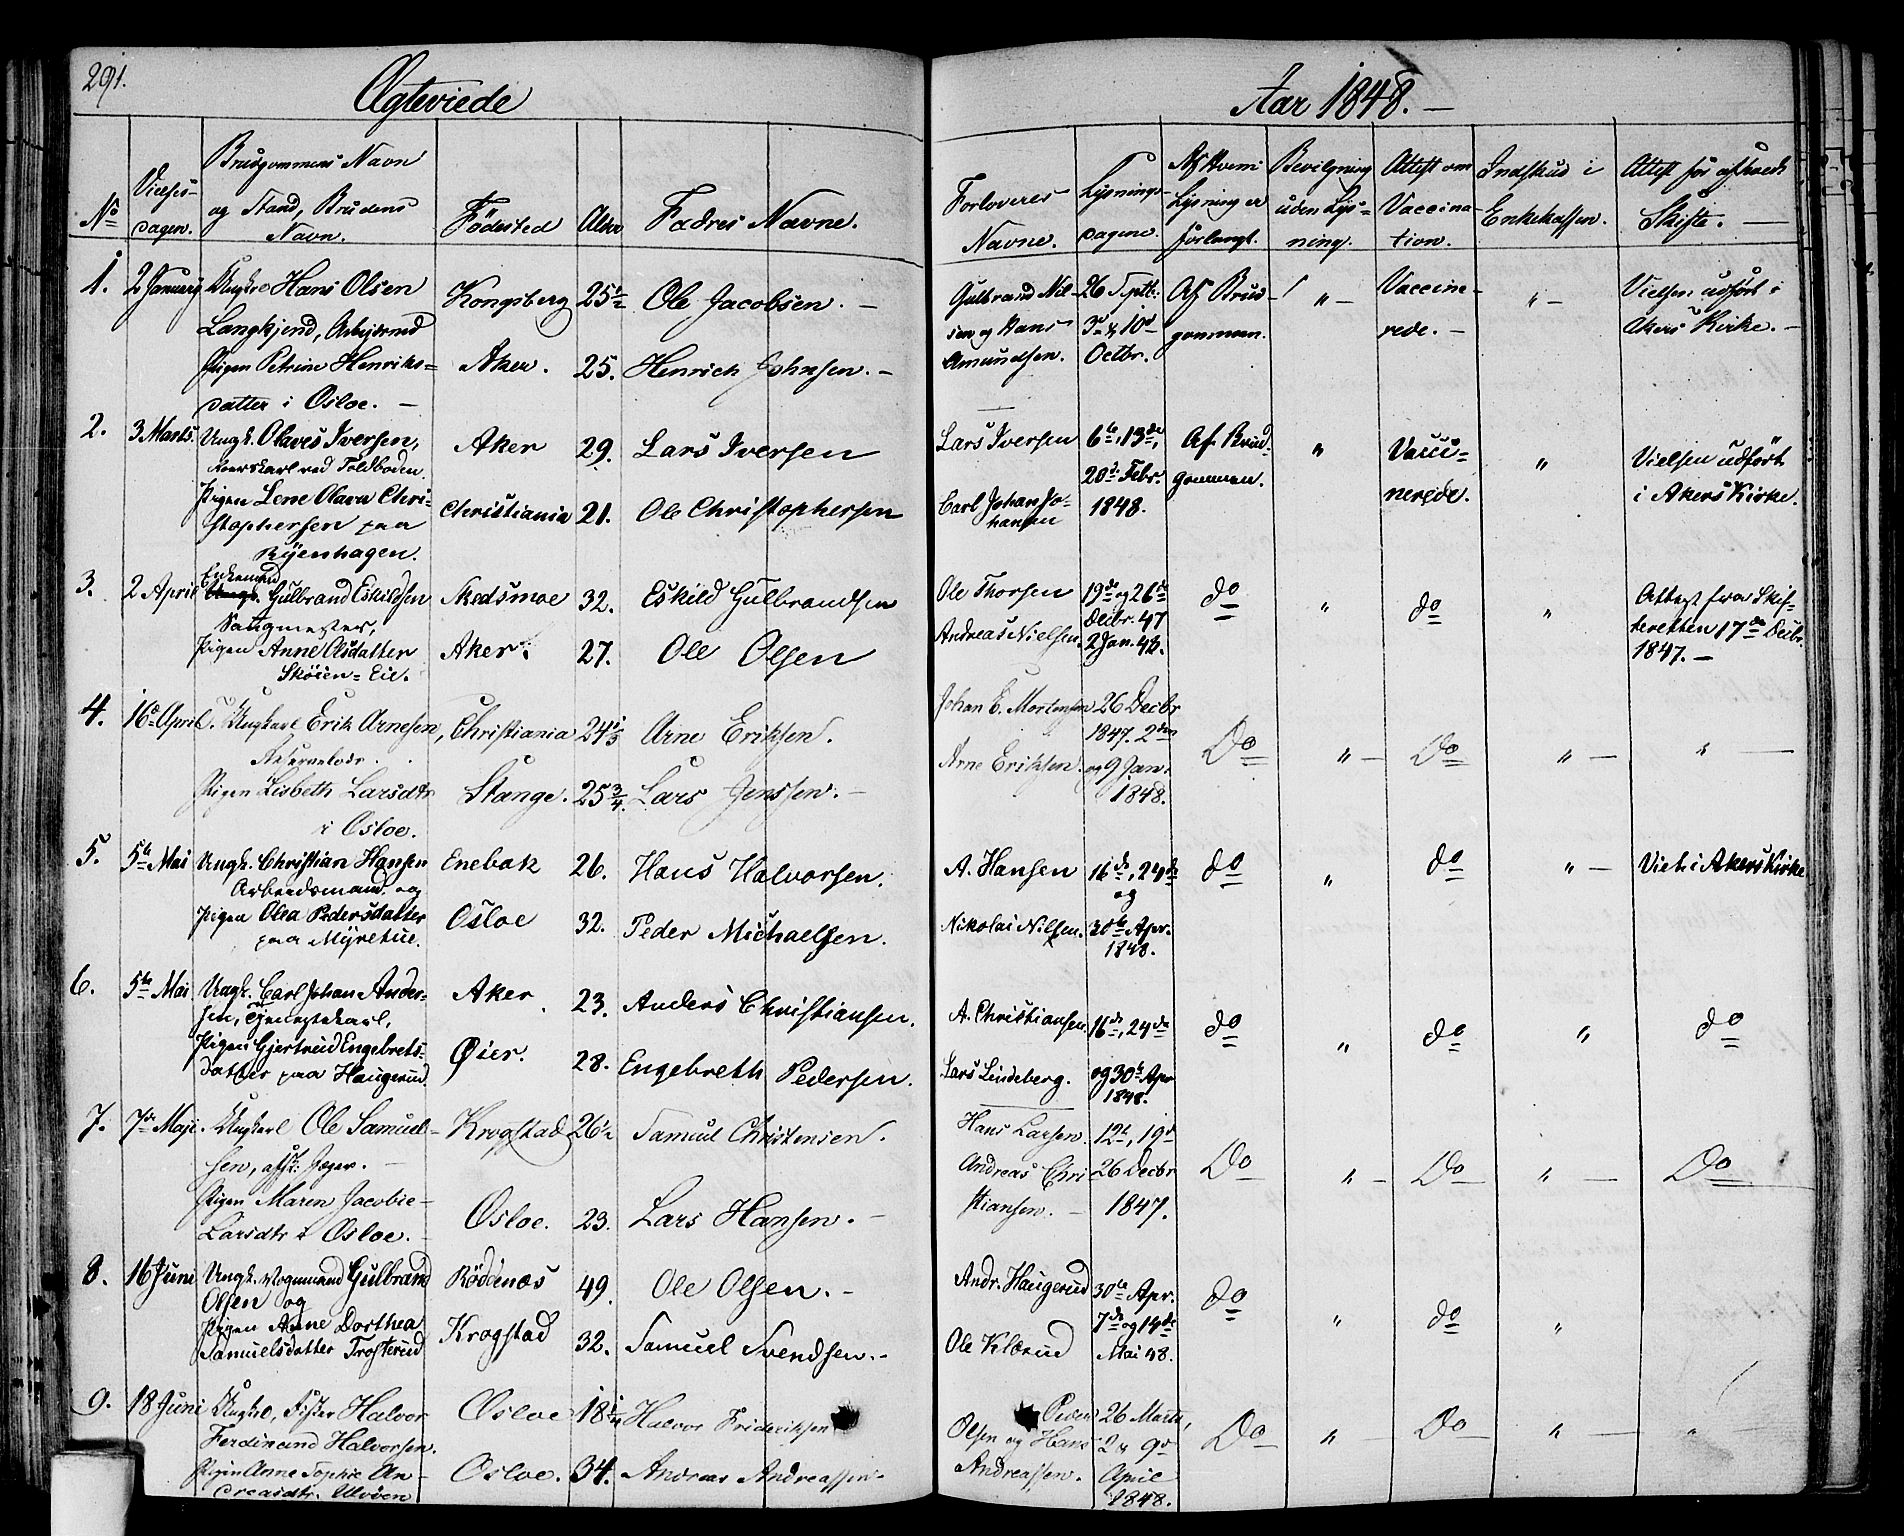 291.
Ægteviede
Aar 1848. —
No
Vielses-
dagen.
Brudgommens Navn
og Stand, Brudens
Navn.
Födested
Alder
Fadres Navne.
Forloveres
Navne.
Lysnings-
dagene.
Af hvem
Lysning er
forlangt.
Bevilgning
uden Lys=
ning.
Attest om
Vaccina-
tion.
Indskud i
Enkekassen.
Attest for afholdt
Skifte. —
1. 2 Januar Ungkr. Hans Olsen
Langkjend, Arbejdsmd
Pigen Petrine Henriks=
datter i Osloe. —
Kongsberg 25½ Ole Jacobsen. —
Aker. 25. Henrich Johnsen. —
Gulbrand Nil-
sen og Hans
Amundsen.
26 Septb.
3d & 10d
Octbr.
Af Brud-
gommen.
" —
Vaccine-
rede. —
" —
Vielsen udført i
Akers Kirke. —
2. 3 Marts. Ungk. Olaves Iversen,
Roerskarl ved Toldboden.
Pigen Lene Olava Chri-
stophersen paa
Ryenhagen.
Aker 29. Lars Iversen
Christiania 21. Ole Christophersen
Lars Iversen
Carl Johan Jo-
hansen
6te, 13de,
20de Febr.
1848.
Af Brud-
gommen.
"
Vacci=
nerede.
"
Vielsen udført
i Akers Kirke.
3. 2 April Enkemand
Ungk. Gulbrand Eskildsen
Saugmester,
Pigen Anne Olsdatter
Skøien=Eie.
Skedsmoe 32. Eskild Gulbrandsen
Aker. 27. Ole Olsen
Ole Thorsen
Andreas Nielsen.
19de og 26de
Decbr. 47
2 Jan. 48.
do
"
do
"
Attest fra Skif-
teretten 17de Decbr.
1847. —
4. 16d April. Ungkarl Erik Arnesen,
Pigen Lisbeth Larsdtr
i Osloe.
Christiania 24⅓ Arne Eriksen.
Stange. 25¾. Lars Jenssen. —
Johan E. Mortensen
Arne Eriksen.
26 Decbr
1847. 2den
og 9 Jan.
1848.
Do
" —
Do
" —
" —
5. 5te Mai Ungk. Christian Hansen
Arbeidsmand, og
Pigen Olea Pedersdatter
paa Myretue.
Enebak 26. Hans Halvorsen.
Osloe 32. Peder Michaelsen.
A. Hansen
Nikolai Nilsen.
16de, 24de
og
30te Apr.
1848.
do
"
do
" —
Viet i Akers Kirke
6. 5te Mai Ungk. Carl Johan Ander-
sen, Tjenestekarl,
Pigen Gjertrud Engebrets-
datter paa Haugerud.
Aker 23. Anders Christiansen.
Øier. 28. Engebreth Pedersen.
A. Christiansen.
Lars Lindeberg.
16de, 24de
og 30te Apr
1848.
do
"
do
"
do
7. 7de Maji. Ungkarl Ole Samuel-
sen, afsk. Jæger. —
Pigen Maren Jacobie
Larsdtr i Osloe. —
Krogstad 26½ Samuel Christensen.
Osloe. 23. Lars Hansen. —
Hans Larsen.
Andreas Chri
stiansen. —
12te, 19d
26 Decbr
1847.
Do
" —
Do
" —
Do
8. 16 Juni Ungk. Vognmand Gulbrand
Olsen og
Pigen Anne Dorthea
Samuelsdatter Trosterud
Röddenæs 49. Ole Olsen. —
Krogstad 32. Samuel Svendsen. —
Andr. Haugerud
Ole Klærud
30te Apr.
7de og 14de
Mai 48.
do
"
do
"
9. 18 Juni Ungkr., Fisker Halvor
Ferdinand Halvorsen.
Pigen Anne Sophie An-
dreasdtr. Ulvöen
Osloe 18¼ Halvor Frideriksen
Osloe. 34. Andreas Andreassen
Peder
Olsen og Hans
Andreassen.
26 Marts,
2 & 9d
April
1848.
Do
" —
Do
" —
"